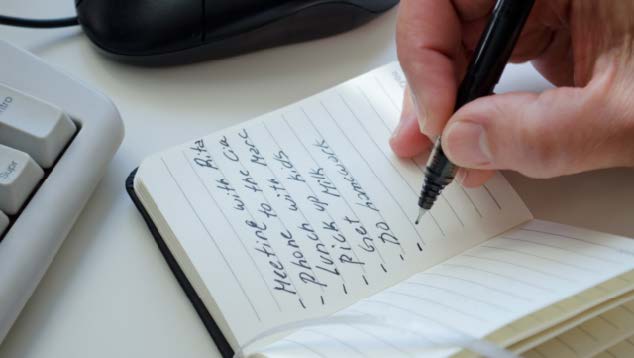 Meeting with Rita
- Phone to the Marc
- Lunch with kids
- Pick up Milk
- Get
- Do homework
-
ntro
Supr